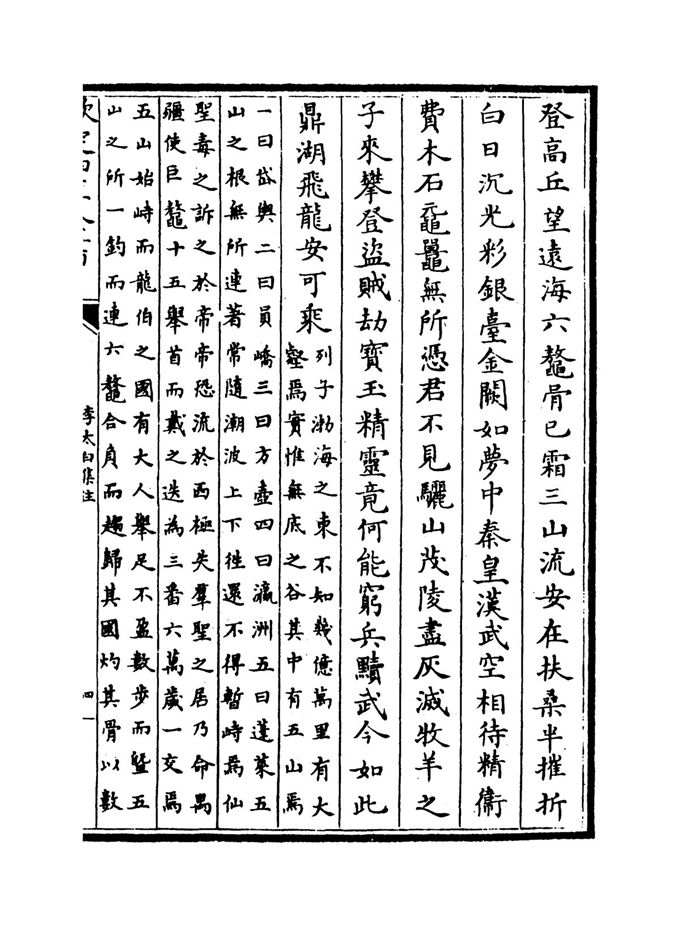 登高丘望遠海六鼇骨已霜三山流安在扶桑半摧折
白日沉光彩銀臺金闕如夢中秦皇漢武空相待精衛
費木石黿鼉無所憑君不見驪山茂陵盡灰滅牧羊之
子來攀登盜賊劫寶玉精靈竟何能窮兵黷武今如此
鼎湖飛龍安可乘
列子渤海之東不知幾億萬里有大
壑焉實惟無底之谷其中有五山焉
一曰岱輿二曰員嶠三曰方壺四曰瀛洲五曰蓬萊五
山之根無所連著常隨潮波上下徃還不得暫峙焉仙
聖毒之訴之於帝帝恐流於西極失羣聖之居乃命禺
疆使巨鼇十五舉首而戴之迭為三番六萬歲一交焉
五山始峙而龍伯之國有大人舉足不盈數步而暨五
山之所一釣而連六鼇合負而趣歸其國灼其骨以數
李太白集注